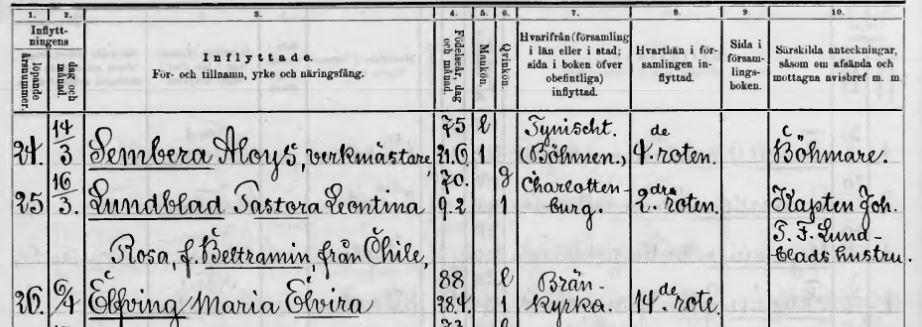 1. 2. 3. 4. 5. 6. 7. 8. 9. 10.
Inflyttningens
löpande årsnummer.
dag och månad.
Inflyttade.
För- och tillnamn, yrke och näringsfång.
Födelseår, dag och månad.
Mankön.
Qvinkön.
Hvarifrån (församling
i län eller i stad;
sida i boken öfver
obefintliga)
inflyttad.
Hvarthän i för-
samlingen in-
flyttad.
Sida i
försam-
lings-
boken.
Särskilda anteckningar,
såsom om afsända och
mottagna avisbref m. m.
14 75 Tynischt.
24. 3 Sembera Aloys, verkmästare, 21.6 1 (Böhmen.) 4.de roten. Böhmare.
16 70. Charlotten-
25 3. Lundblad Pastora Leontina 9.2 1 burg. 2.dra roten. Kapten Joh.
Rosa, f. Beltramin, från Chile, P. F. Lund-
blads hustru.
88 Brän-
26. 6/4 Elfving Maria Elvira 28.4. 1 kyrka. 14.de rote.